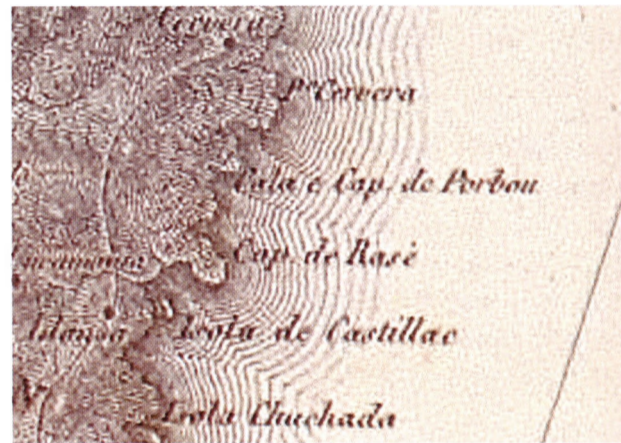 Cervera
Pta Cervera
Cala e Cap. de Porbou
Cap. de Rasè
Isola de Castillac
Isola Chuchada